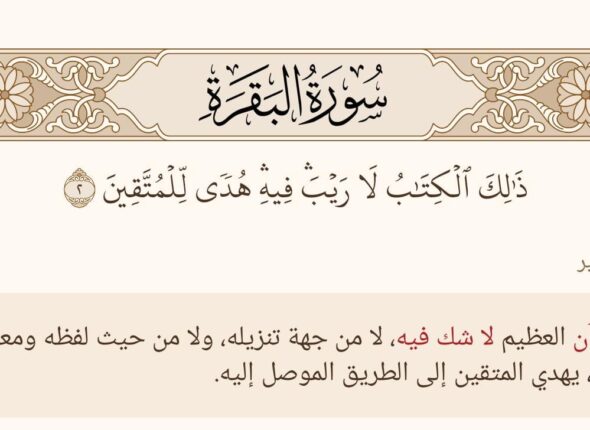 سُورَةُ البَقَرَةِ
ذَٰلِكَ ٱلۡكِتَٰبُ لَا رَيۡبَۛ فِيهِۛ هُدٗى لِّلۡمُتَّقِينَ ٢
العظيم لا شك فيه، لا من جهة تنزيله، ولا من حيث لفظه
، يهدي المتقين إلى الطريق الموصل إليه.